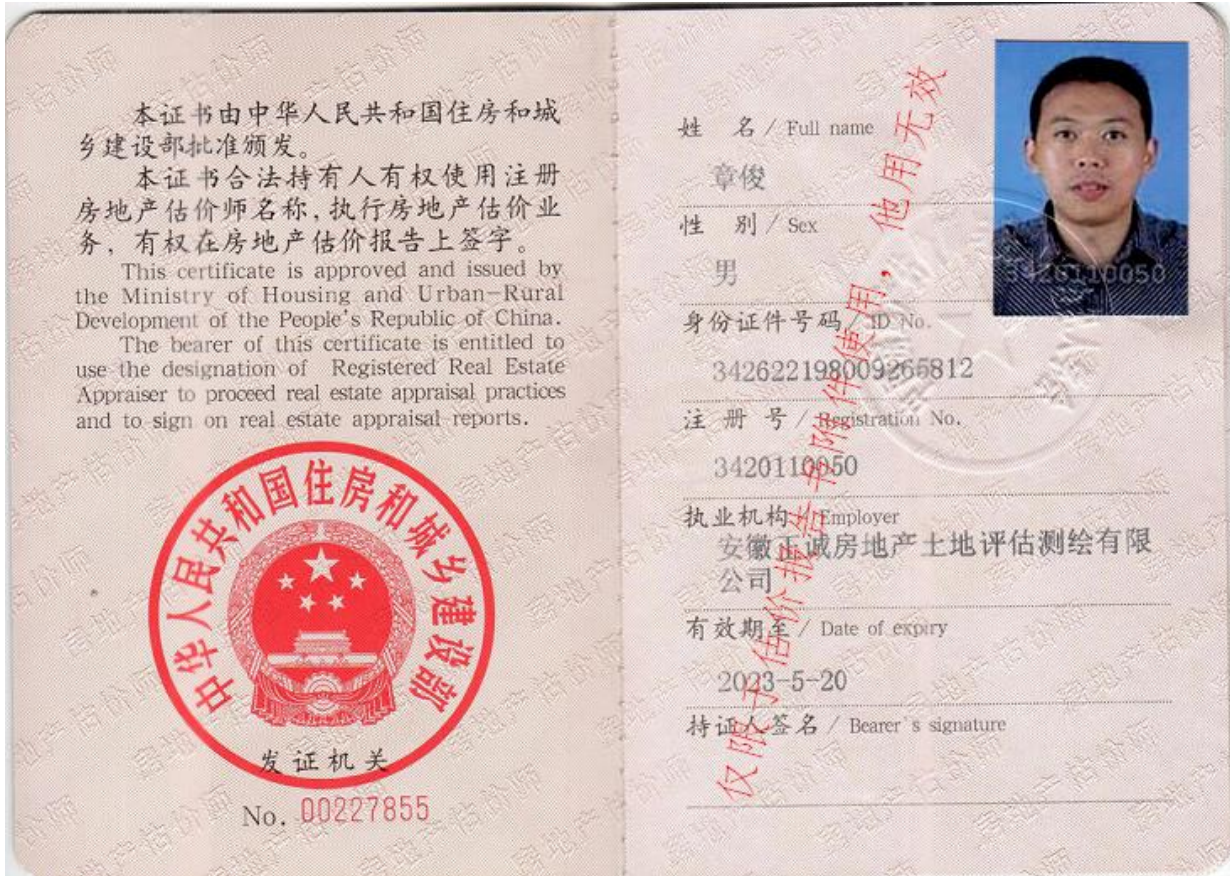 本证书由中华人民共和国住房和城
乡建设部批准颁发。
本证书合法持有人有权使用注册
房地产估价师名称,执行房地产估价业
务,有权在房地产估价报告上签字。
This certificate is approved and issued by
the Ministry of Housing and Urban-Rural
Development of the People's Republic of China.
The bearer of this certificate is entitled to
use the designation of Registered Real Estate
Appraiser to proceed real estate appraisal practices
and to sign on real estate appraisal reports.
中华人民共和国住房和城乡建设部
发证机关
No. 00227855
姓 名 / Full name
章俊
性 别 / Sex
男
身份证件号码 / ID No.
342622198009265812
注 册 号 / Registration No.
3420110050
执业机构 / Employer
安徽正诚房地产土地评估测绘有限
公司
有效期至 / Date of expiry
2023-5-20
持证人签名 / Bearer's signature
3420110050
仅限于估价报告书附件使用,他用无效
房地产估价师